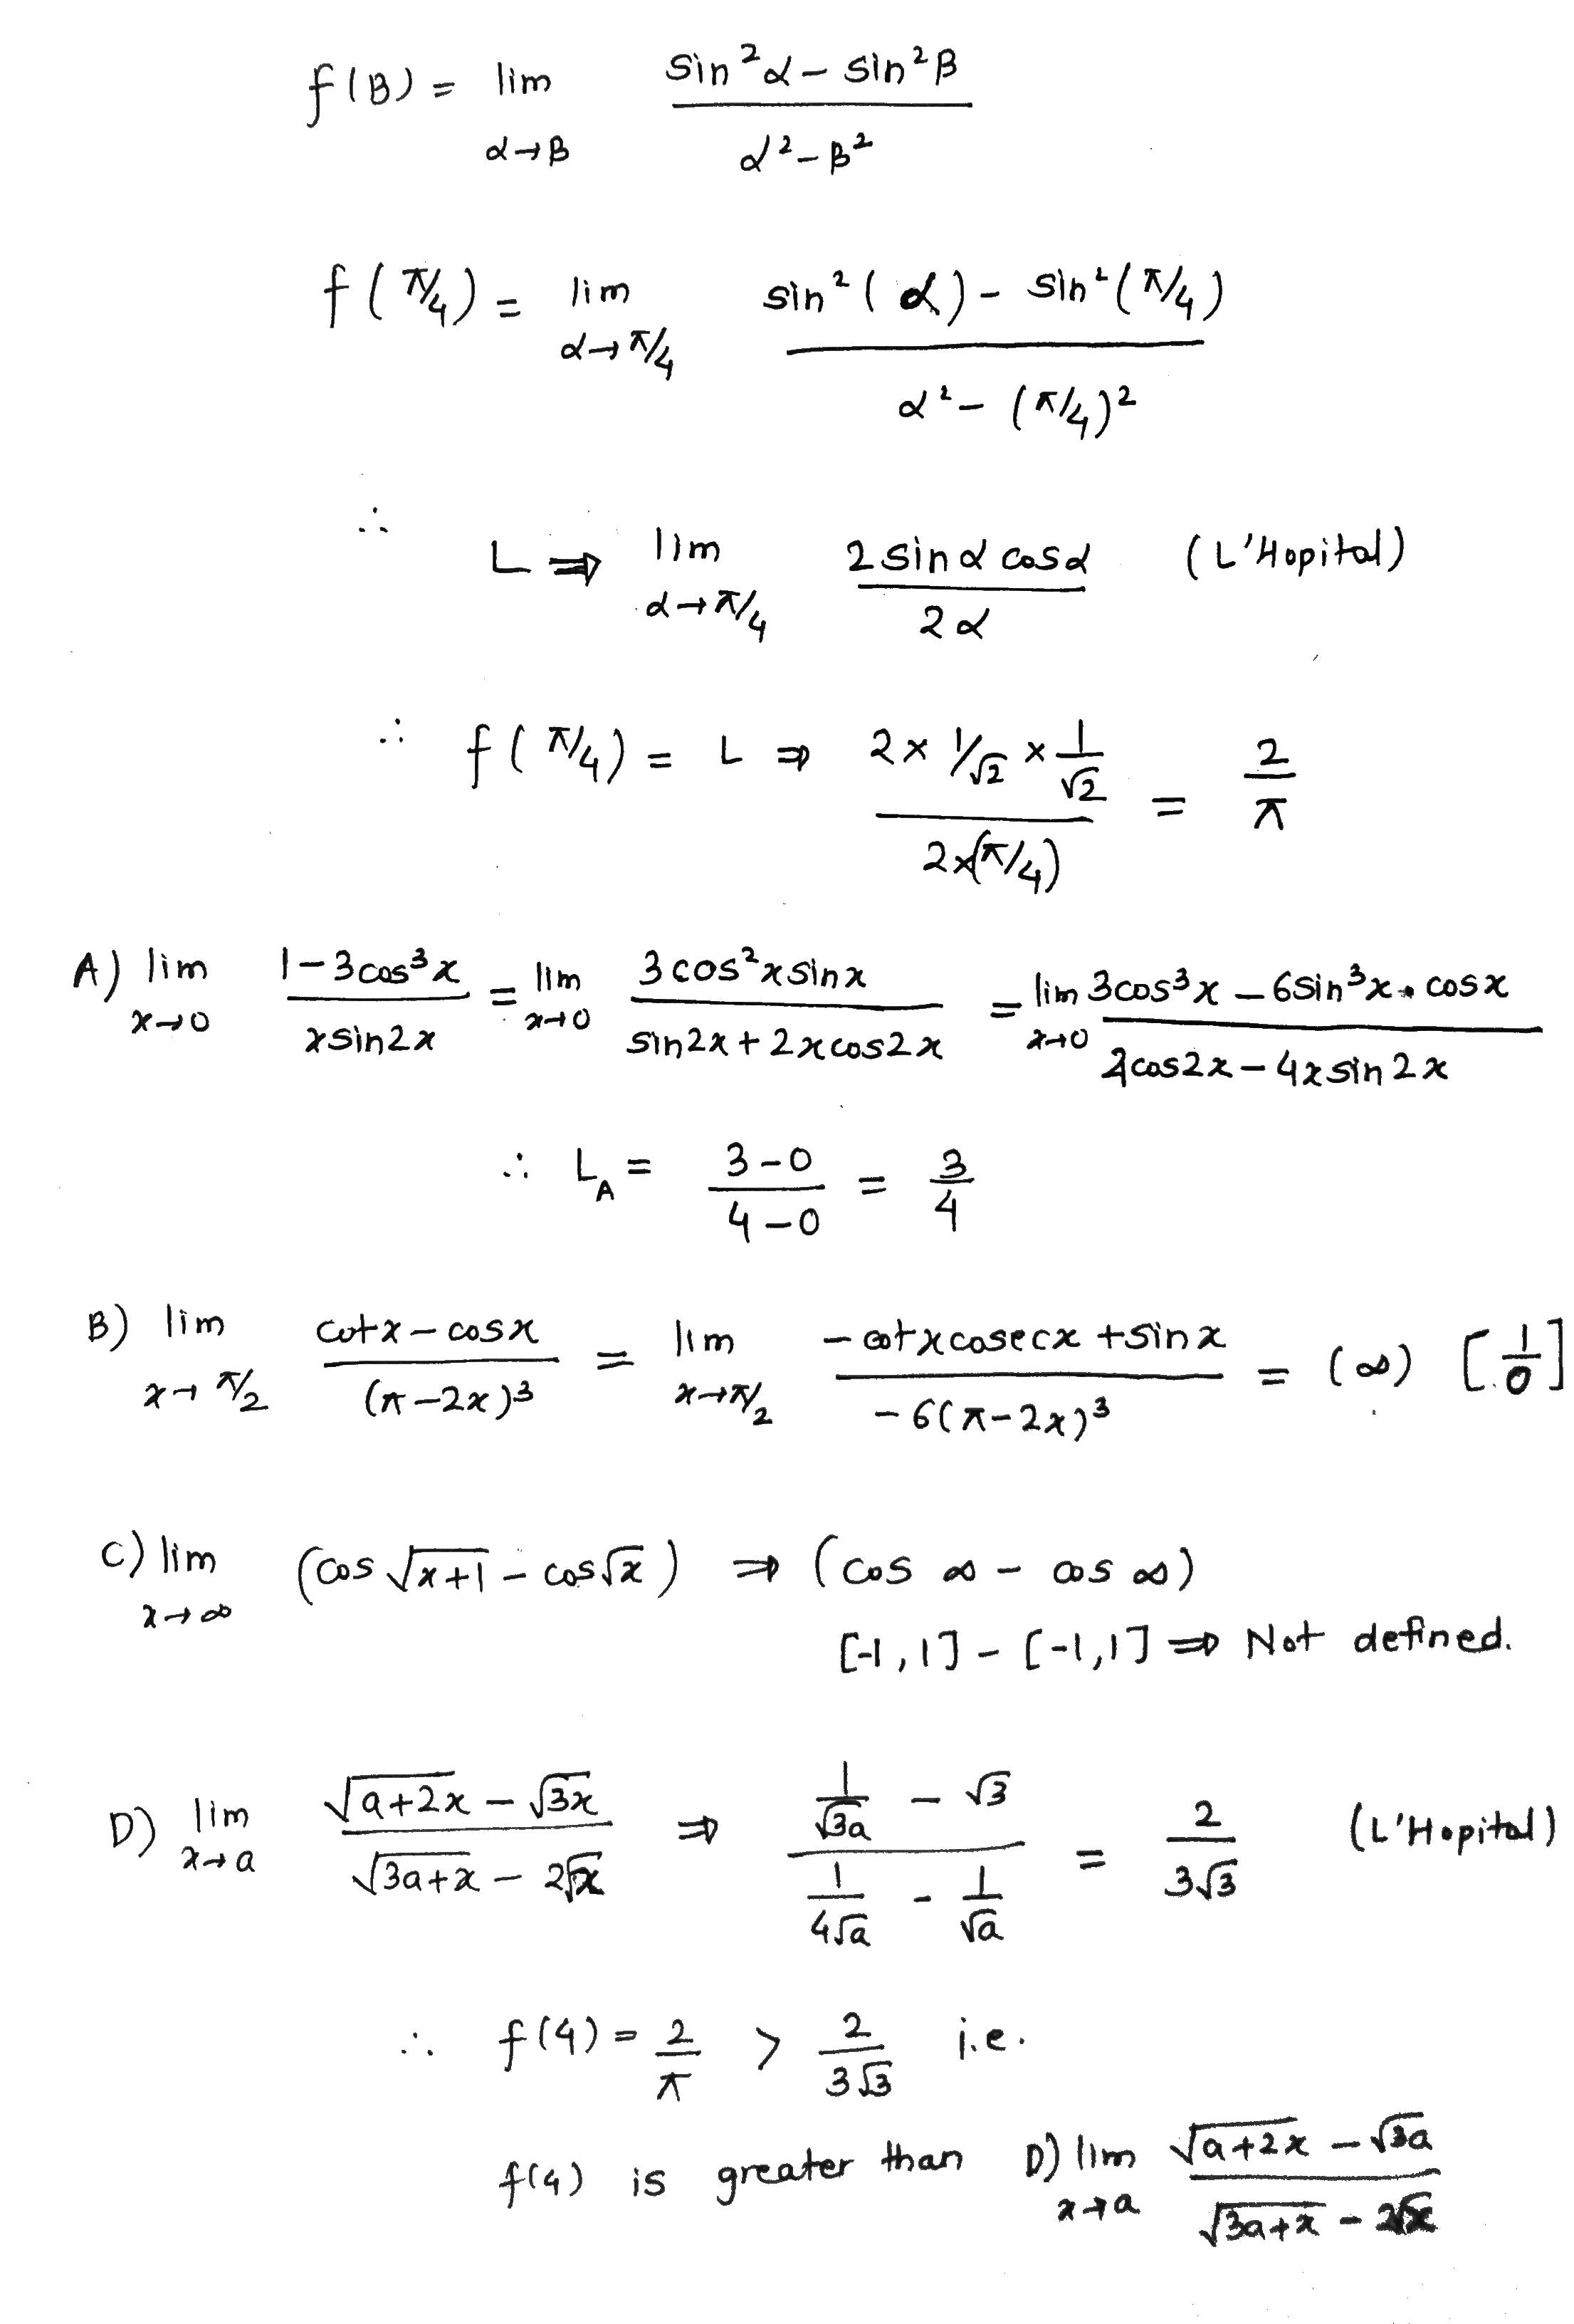 f(β) = lim α→β (sin²α − sin²β)/(α² − β²)
f(π/4) = lim α→π/4 (sin²(α) − sin²(π/4))/(α² − (π/4)²)
∴ L ⇒ lim α→π/4 (2 sin α cos α)/(2α) (L'Hopital)
∴ f(π/4) = L ⇒ (2 × 1/√2 × 1/√2)/(2×(π/4)) = 2/π
A) lim x→0 (1 − 3cos³x)/(x sin2x) = lim x→0 (3 cos²x sin x)/(sin2x + 2x cos2x) = lim x→0 (3cos³x − 6sin³x · cos x)/(4cos2x − 4x sin 2x)
∴ L_A = (3 − 0)/(4 − 0) = 3/4
B) lim x→π/2 (cot x − cos x)/(π − 2x)³ = lim x→π/2 (− cot x cosec x + sin x)/(− 6(π − 2x)³) = (∞) [1/0]
C) lim x→∞ (cos √(x+1) − cos √x) ⇒ (cos ∞ − cos ∞)
[-1, 1] − [-1, 1] ⇒ Not defined.
D) lim x→a (√(a+2x) − √(3x))/(√(3a+x) − 2√x) ⇒ (1/√(3a) − √3)/(1/(4√a) − 1/√a) = 2/(3√3) (L'Hopital)
∴ f(4) = 2/π > 2/(3√3) i.e.
f(4) is greater than D) lim x→a (√(a+2x) − √(3a))/(√(3a+x) − 2√x)